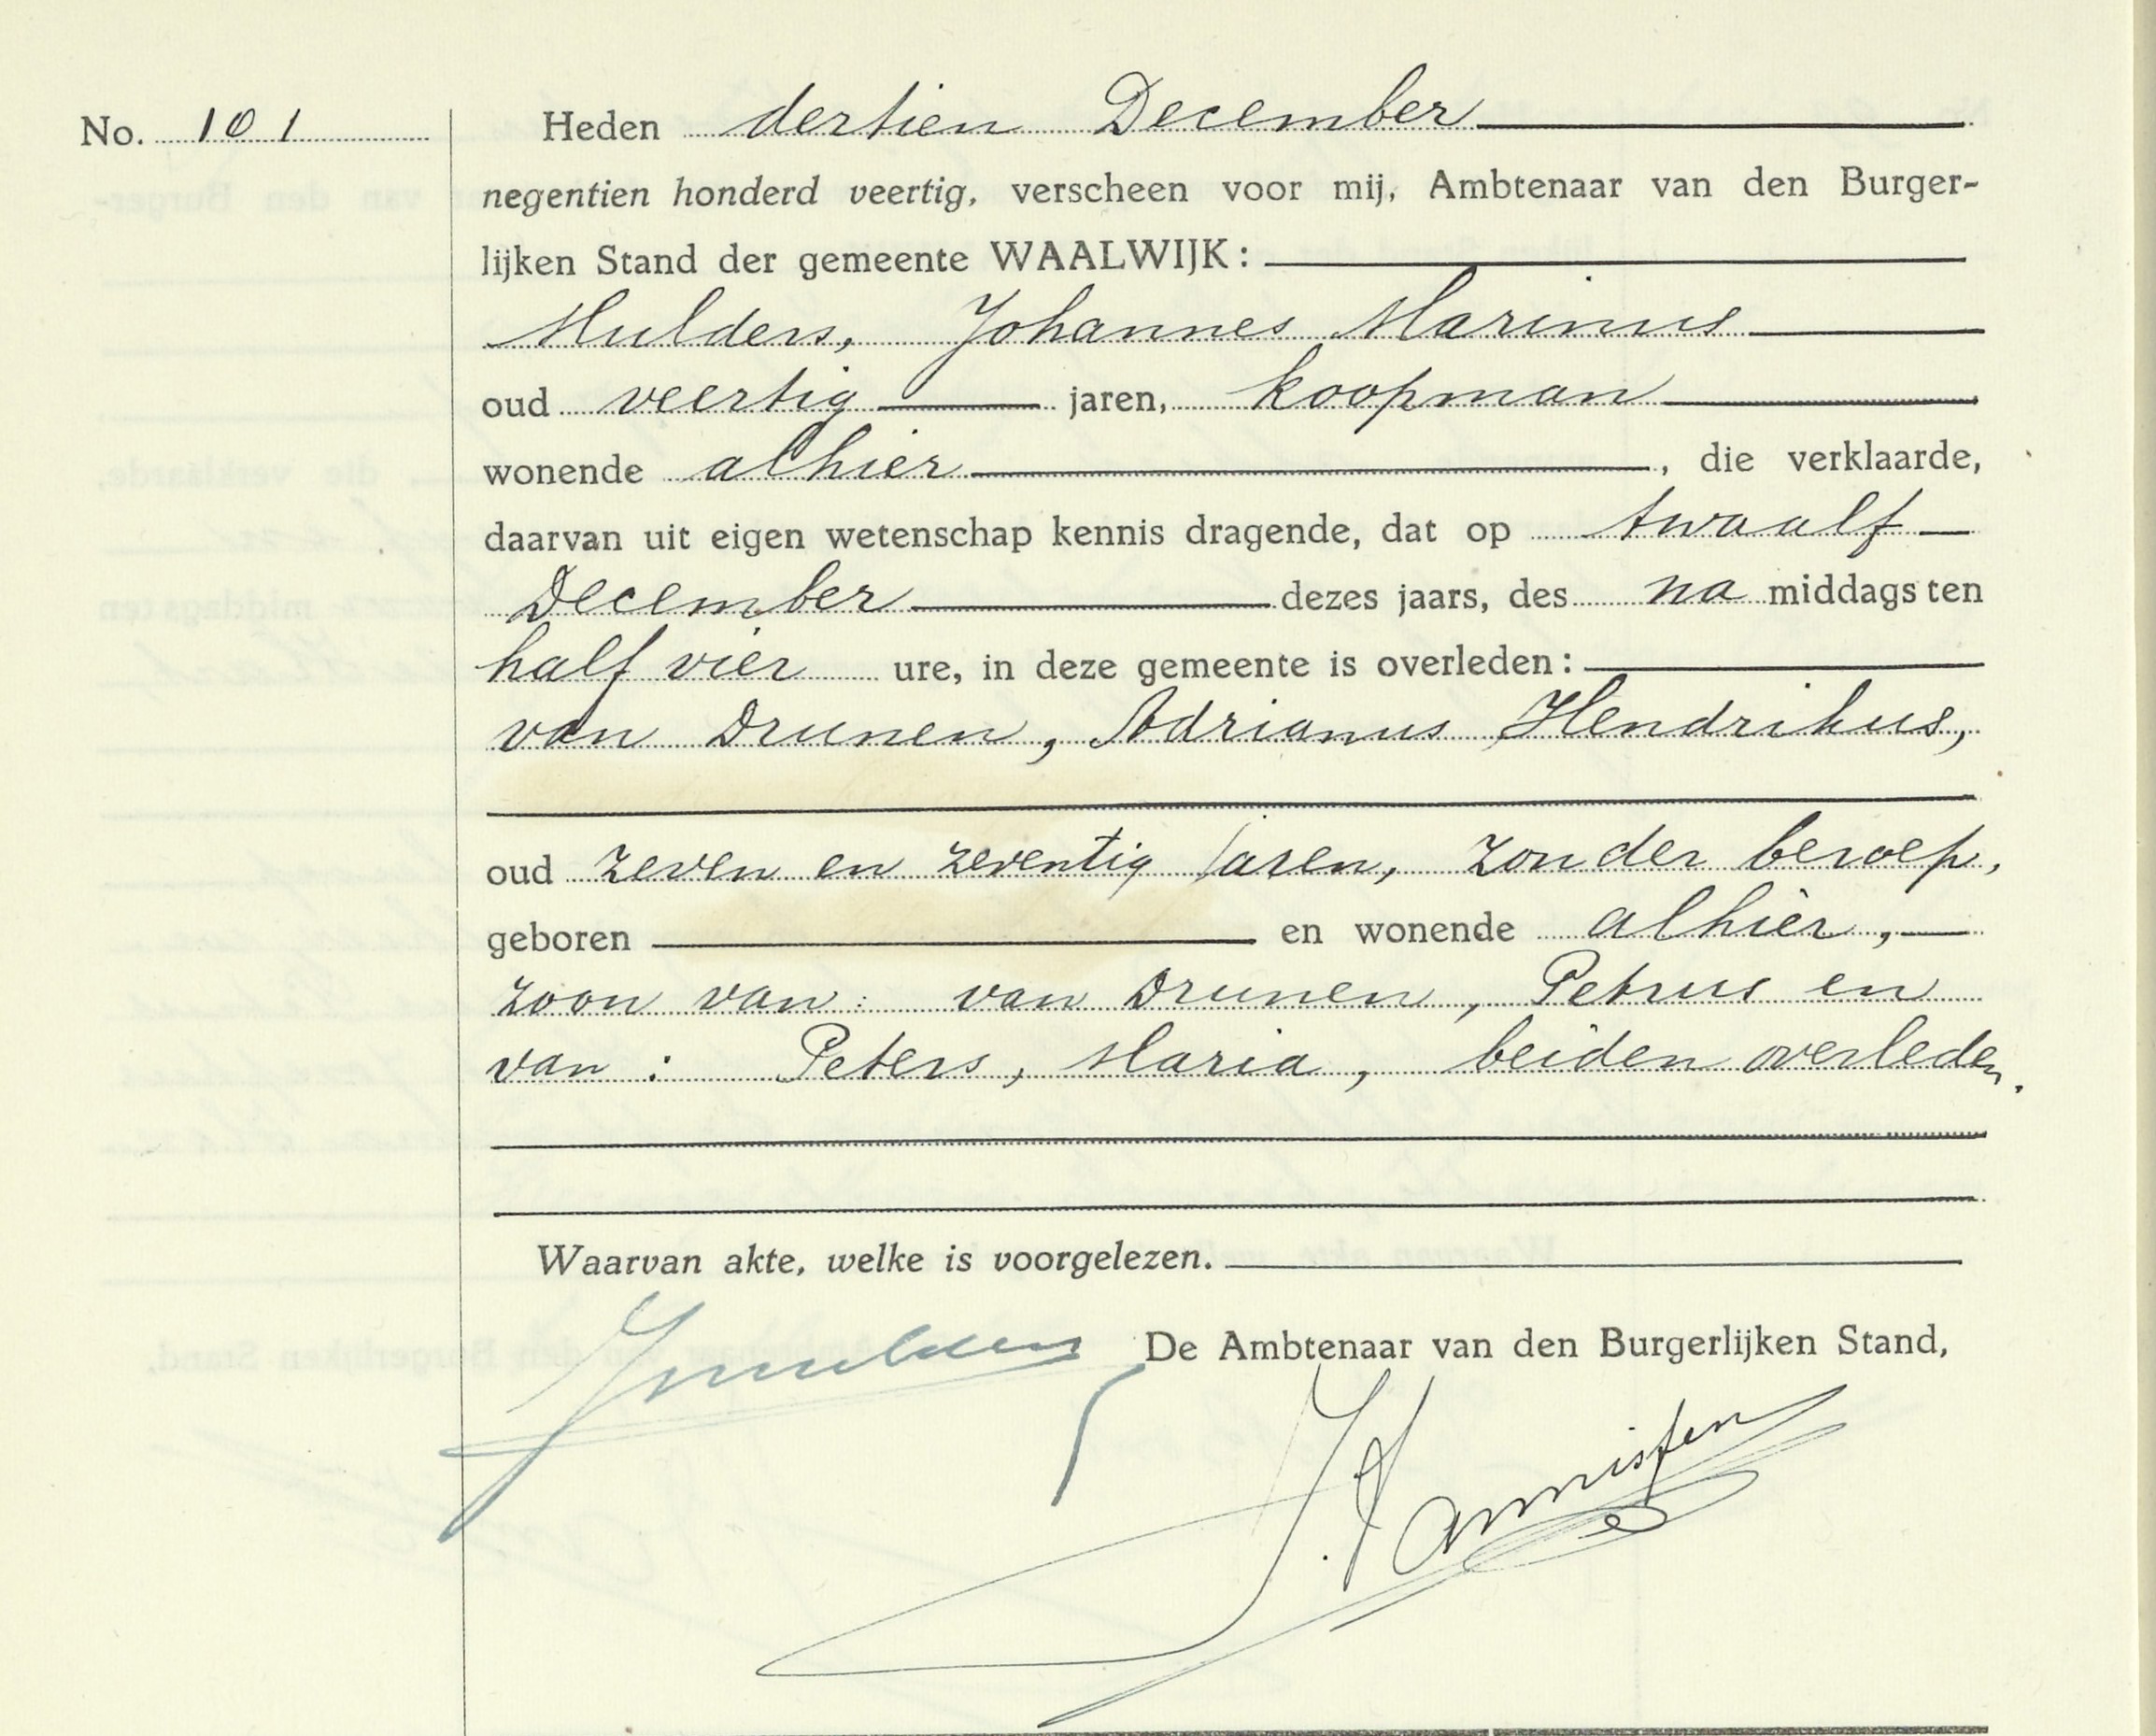 No. 101
Heden dertien December
negentien honderd veertig, verscheen voor mij, Ambtenaar van den Burger-
lijken Stand der gemeente WAALWIJK:
Mulders, Johannes Marinus
oud veertig jaren, koopman
wonende alhier, die verklaarde,
daarvan uit eigen wetenschap kennis dragende, dat op twaalf
December dezes jaars, des na middags ten
half vier ure, in deze gemeente is overleden:
van Drunen, Adrianus Hendrikus,
oud zeven en zeventig jaren, zonder beroep,
geboren en wonende alhier,
zoon van: van Drunen, Petrus en
van: Peters, Maria, beiden overleden.
Waarvan akte, welke is voorgelezen.
De Ambtenaar van den Burgerlijken Stand,